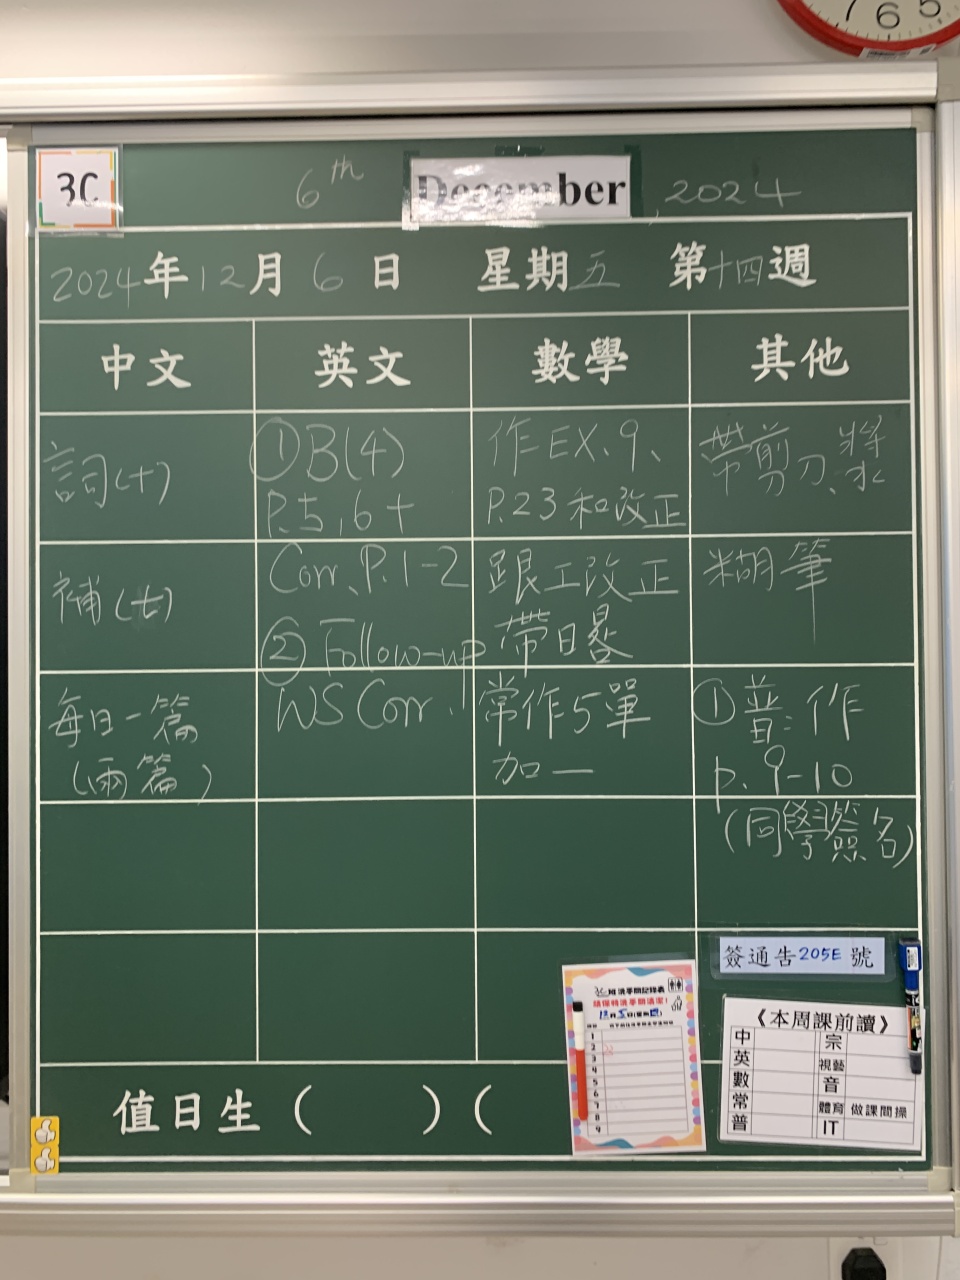 7 6 5
3C
6th December, 2024
2024年12月6日 星期五 第十四週
中文 英文 數學 其他
詞(十)
補(七)
每日一篇
(兩篇)
①B(4)
P.5,6+
Corr、P.1-2
②Follow-up
WS Corr.
作EX、9、
P.23和改正
跟工改正
帶日畧
常作5單
加一
帶剪刀、漿
糊筆
①普:作
p.9-10
(同學簽名)
簽通告205E號
12月5日(星期四)
1
2
3
4
5
6
7
8
9
《本周課前讀》
中 宗
英 視藝
數 音
常 體育 做課間操
普 IT
值日生( )(